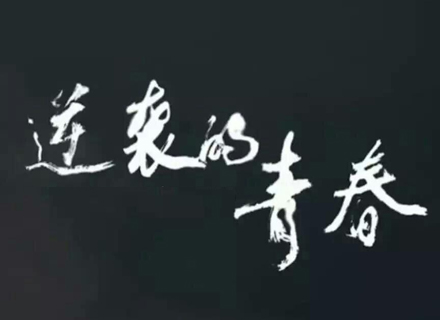 逆袭的
青春